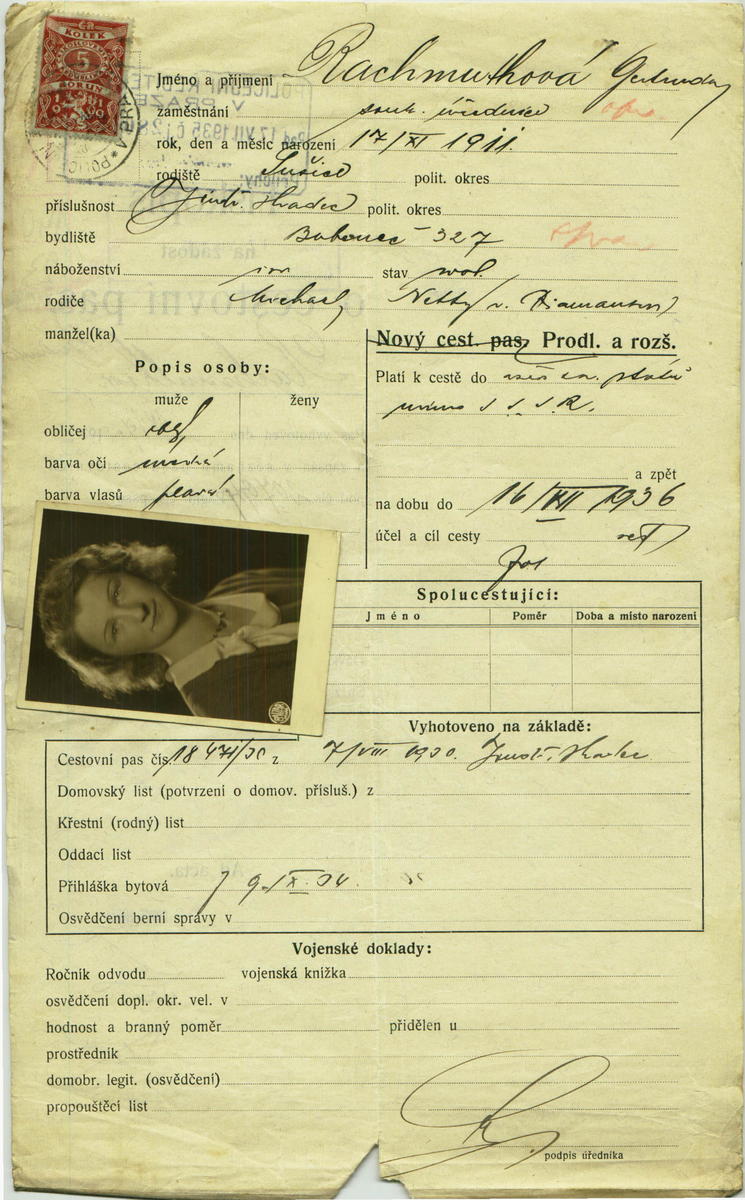 KOLEK
5
KORUN
Jméno a přijmení Rachmuthová Gertruda
zaměstnání souk. úřednice
rok, den a měsíc národení 17/XI 1911.
rodiště Sušice polit. okres
příslušnost Jindř. Hradec polit. okres
bydliště Bubeneč 327
náboženství stav svob.
rodiče Michael, Netty r. Diamantová
manžel(ka) Nový cest. pas, Prodl. a rozš.
Popis osoby:
Platí k cestě do států
muže ženy
mimo S.S.S.R.
obličej obl.
barva očí modrá
a zpět
barva vlasů plavá
na dobu do 16/XII 1936
účel a cíl cesty
Spolucestující:
Jméno Poměr Doba a místo narození
Vyhotoveno na základě:
Cestovní pas čís. z 7/VIII 1930. Jindř. Hradec
Domovský list (potvrzení o domov. přísluš.) z
Křestní (rodný) list
Oddací list
Přihláška bytová 9./X. 34
Osvědčení berní správy v
Vojenské doklady:
Ročník odvodu vojenská knížka
osvědčení dopl. okr. vel. v
hodnost a branný poměr přidělen u
prostředník
domobr. legit. (osvědčení)
propouštěcí list
podpis úředníka